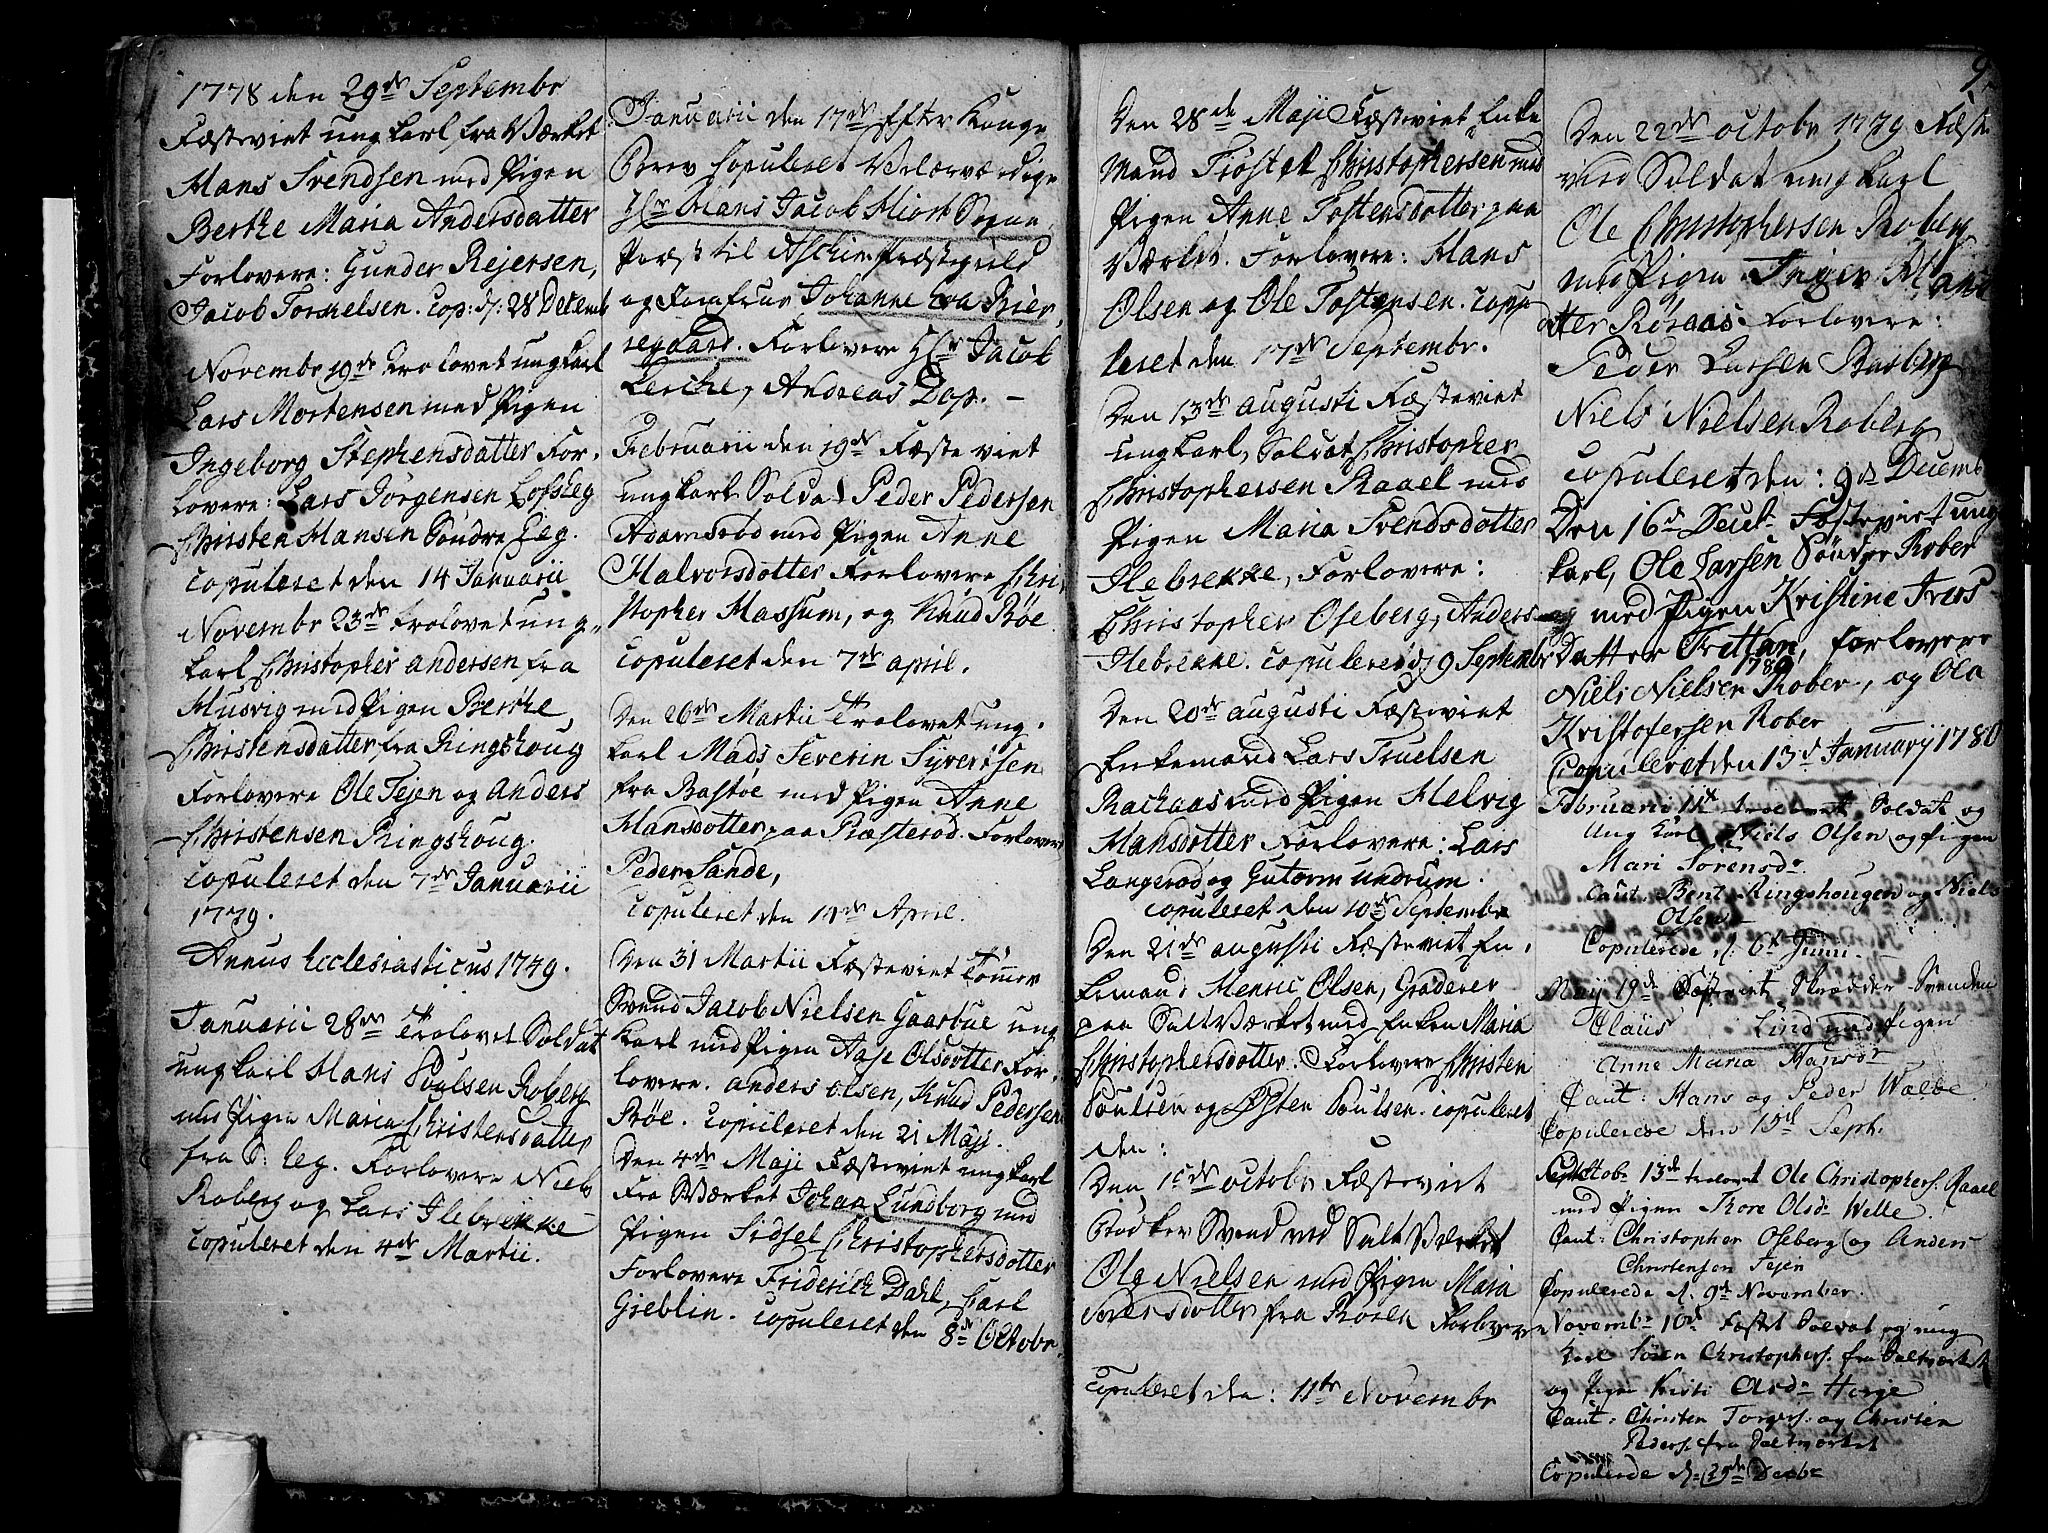 1778 den 29de Septembr
Fæsteviet ungkarl fra Værket
Hans Svendsen med Pigen
Berthe Maria Andersdatter
Forlovere: Gunder Rejersen,
Jacob Torkelsen. Cop: d: 28 Decemb
Novembr 19de Trolovet ungkarl
Lars Mortensen med Pigen
Ingeborg Stephensdatter For-
lovere: Lars Jörgensen Lofsteg
Christen Hansen Söndre Eeg.
copuleret den 14 Januarii
Novembr 23de trolovet ung-
karl Christopher andersen fra
Husvig med Pigen Berthe
Christensdatter fra Ringshoug
Forlovere Ole Tejen og Anders
Christensen Ringshoug.
copuleret den 7de Januarii
1779.
Annus Ecclesiasticus 1779.
Januarii 28de Trolovet Soldat
ungkarl Hans Poulsen Roberg
med Pigen Maria Christensdatter
fra S: Eeg. Forlovere Niels
Roberg og Lars Ilebrekke
copuleret den 4de Martii.
Januarii den 17de Effter Konge
Brev Copuleret Velærværdige
Hr Hans Jacob Hiort Sogne
Præst til Aschim Præstegield
og Jomfrue Johanne von Bier-
regaard. Forlovere Hr Jacob
Lerche, Andreas Dop. –
Februarii den 19de Fæsteviet
ungkarl Soldat Peder Pedersen
Adamsröd med Pigen Anne
Halvorsdotter Forlovere Chri-
stopher Massum, og Knud Böe
copuleret den 7de april.
Den 26de Martii Trolovet ung-
karl Mads Severin Syvertsen
fra Bastöe med Pigen Anne
Hansdotter paa Præsteröd. Forlovere
Peder Sande,
copuleret den 14de April.
Den 31 Martii Fæsteviet Tömmer
Svend Jacob Nielsen Gaasbue ung
karl med Pigen Aase Olsdotter For-
lovere. anders olsen, Knud Pedersen
Böe. copuleret den 21 Maji.
Den 4de Maji Fæsteviet ungkarl
Fra Værket Johan Lundborg med
Pigen Sidsel Christophersdotter
Forlovere Friderich Dahl, Carl
Greblin. copuleret den 8de Octobr.
Den 28de Maji Fæsteviet Enke
Mand Tröstel Christophersen med
Pigen Anne Tostensdotter paa
Værket. Forlovere: Hans
Olsen og Ole Tostensen. copu
leret den 17de Septembr.
Den 13de augusti Fæsteviet
ungkarl, Soldat Christopher
Christophersen Raael med
Pigen Maria Svendsdotter
Ilebrekke, Forlovere:
Christopher Oseberg, Anders
Ilebrekke. copuleret d 9 Septembr
Den 20de augusti Fæsteviet
Enkemand Lars Truelsen
Backaas med Pigen Helvig
Hansdotter Forlovere: Lars
Langeröd og Gutorm Undrum.
copuleret den 10de Septembr
Den 21de augusti Fæsteviet En-
kemand Henric Olsen, Graderer
paa Salt Værket med Enken Maria
Christophersdotter. Forlovere Christen
Poulsen og Östen Poulsen. copuleret
den:
Den 1ste octobr Fæsteviet
Bödker Svend ved Salt Værket
Ole Nielsen med Pigen Maria
Sörensdotter fra Roren Forlovere
copuleret den: 11te Novembr
9
Den 22de octobr 1779 Fæste
viet Soldat ungkarl
Ole Christophersen Roberg
med Pigen Inger Hans
datter Röraas. Forlovere:
Peder Larsen Basberg
Niels Nielsen Roberg
copuleret den: 9de Decemb
Den 16de Decbr Fæsteviet ung
karl, Ole Larsen Söndre Rober
og med Pigen Kristine Ivers
Datter Trettan, forlovere
1780
Niels Nielsen Rober, og Ola
Kristofersen Rober
Copuleret den 13de January 1780
Februarii 11te trolovet Soldat og
Ung Karl Niels Olsen og Pigen
Mari Sorensdr
Caut. Bent Ringshougen og Niels
Olsen
Copulerede d. 6te Junii.
Maij 19de Fæsteviet Skrædder-Svenden
Claus Lind med Pigen
Anne Maria Hansdr
Caut: Hans og Peder Walbe
Copulerede den 15de Sept.
Septbr 13de trolovet Ole Christophers. Raael
med Pigen Thore Olsdr Welle
Caut: Christopher Oseberg og Anders
Christensen Tejen
Copulerede d. 9de November.
Novembr 10de Fæstet Soldat og ung
Karl Sören Christophers. fra Saltværket
og Pigen Kirsti Olsdr Herje
Caut: Christen Torgers. og Christen
Peders. fra Saltværket
Copulerede d. 29de Decbr